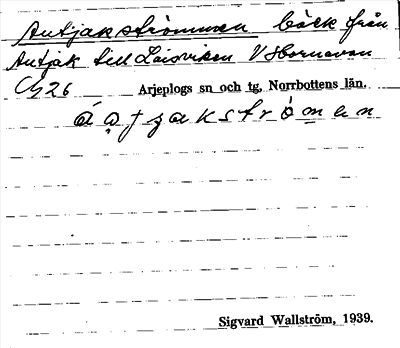 Autjakströmmen bäck från
Autjak till Laisviken V Hornavan
Arjeplogs sn och tg, Norrbottens län.
Sigvard Wallström, 1939.